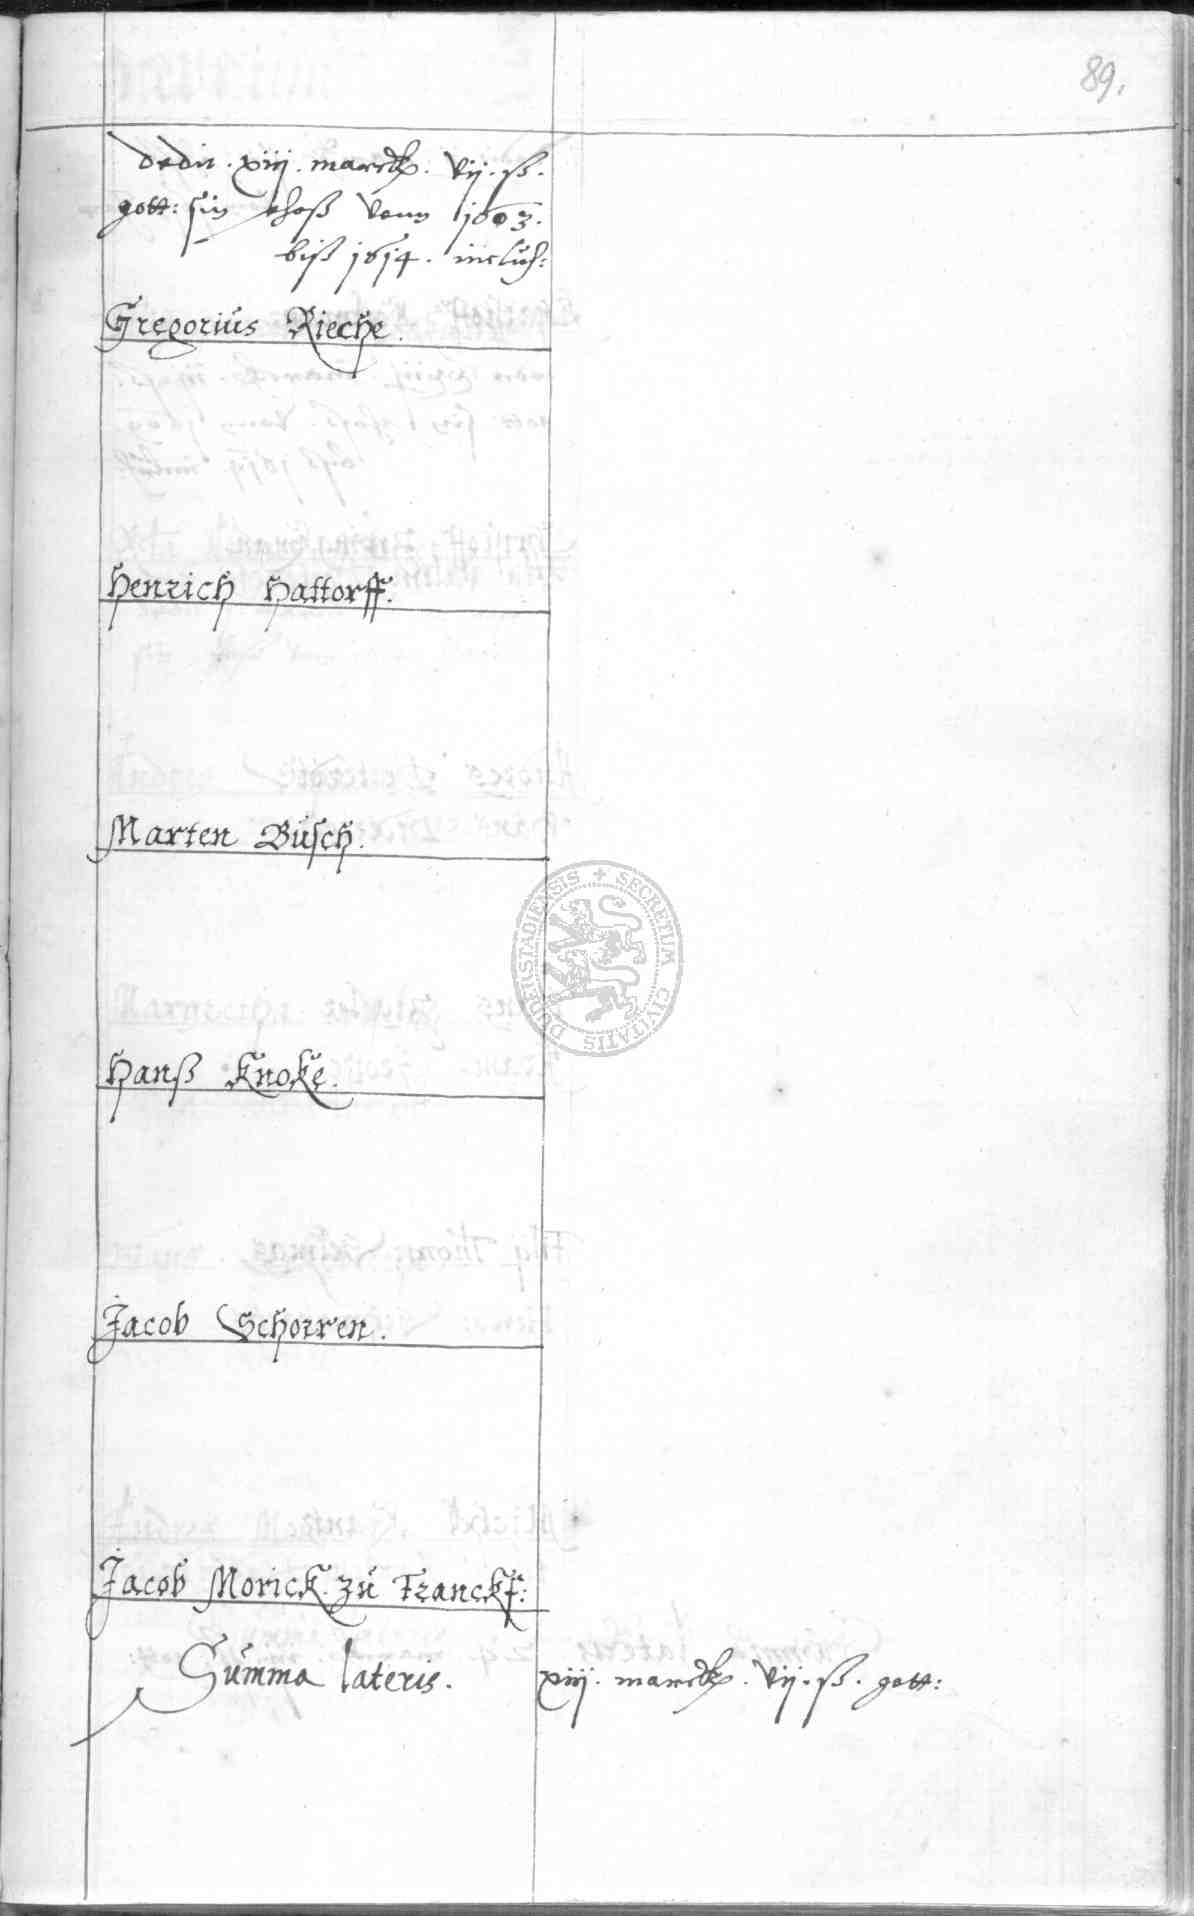 89.
dedit. xiiij. marck. vij. ß.
gott: sin schoß vonn 1603.
biß 1614. inclus:
Gregorius Rieche.
Henrich Hattorff.
Marten Busch.
SECRETUM CIVITATIS DUDERSTADIENSIS
Hanß Knoke.
Jacob Schorren.
Jacob Morick zu Franckf:
Summa lateris. xiiij. marck. vij. ß. gott: